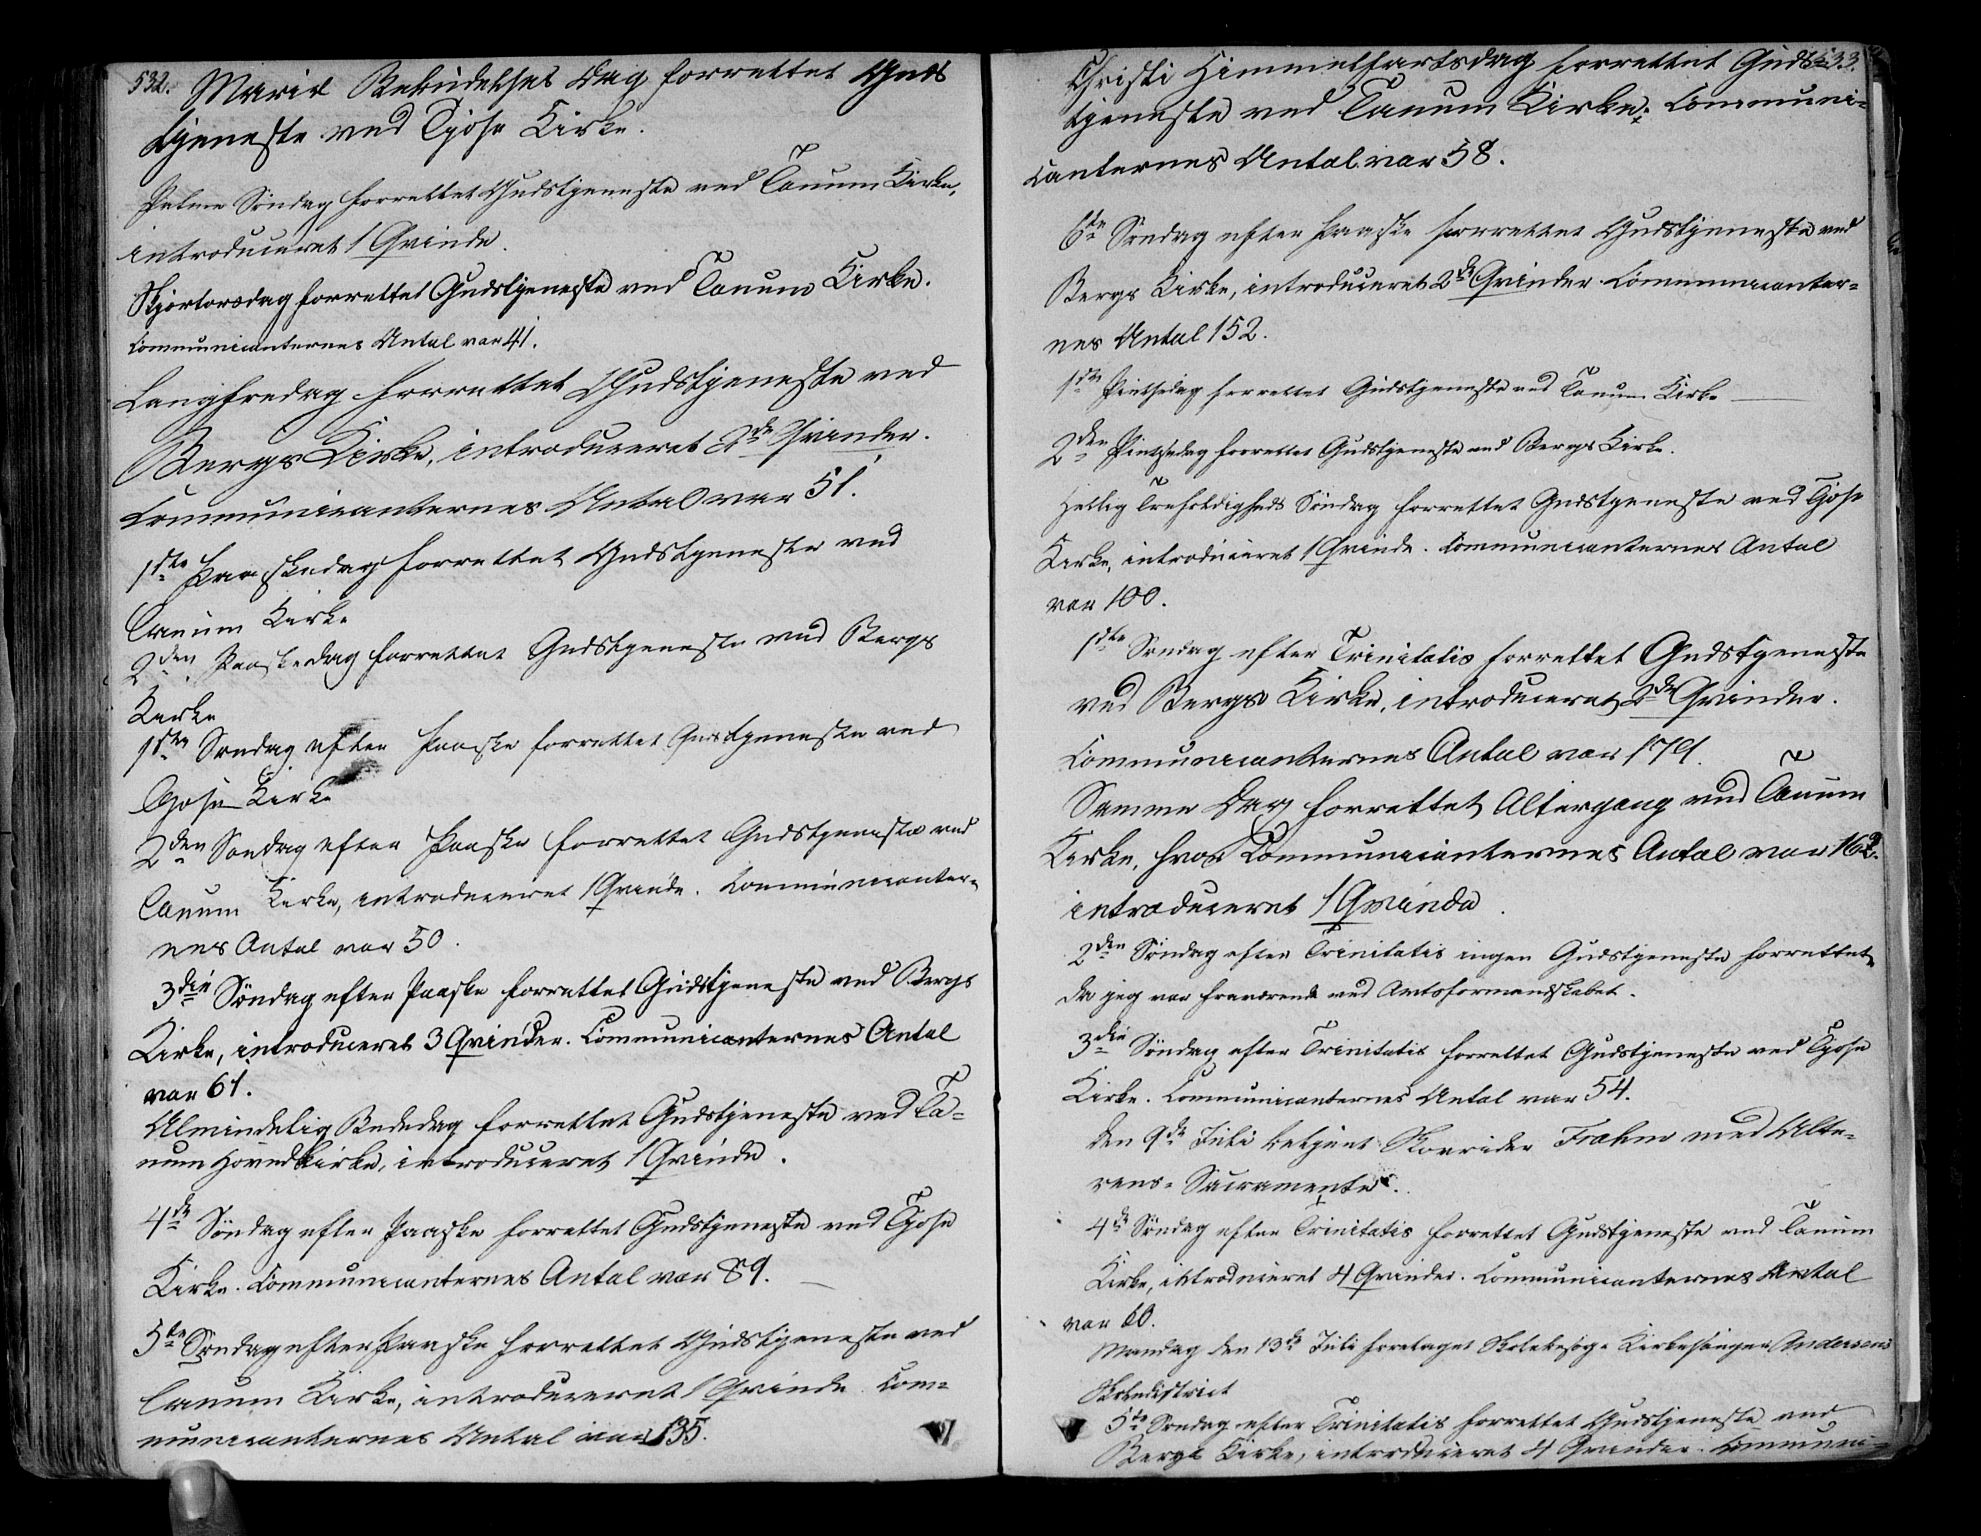 532.
Mariæ Bekiudelses Dag forrettet Guds
tjeneste ved Tjose Kirke.
Palme Søndag forrettet Gudstjeneste ved Tanum Kirke,
introduceret 1 Qvinde.
Skjærtorsdag forrettet Gudstjeneste ved Tanum Kirke.
Communicanternes Antal var 41.
Langfredag forrettet Gudstjeneste ved
Bergs Kirke, introduceret 2de Qvinder.
Communicanternes Antal var 51.
1ste Paaskedag forrettet Gudstjeneste ved
Tanum Kirke
2den Paaskedag forrettet Gudstjeneste ved Bergs
Kirke
1ste Søndag efter Paaske forrettet Gudstjeneste ved
Tjose Kirke
2den Søndag efter Paaske forrettet Gudstjeneste ved
Tanum Kirke, introduceret 1 Qvinde. Communicanter-
nes Antal var 50.
3die Søndag efter Paaske forrettet Gudstjeneste ved Bergs
Kirke, introduceret 3 Qvinder. Communicanternes Antal
var 61.
Almindelig Bededag forrettet Gudstjeneste ved Ta-
num Hovedkirke, introduceret 1 Qvinde.
4de Søndag efter Paaske forrettet Gudstjeneste ved Tjose
Kirke. Communicanternes Antal var 89.
5te Søndag efter Paaske forrettet Gudstjeneste ved
Tanum Kirke, introduceret 1 Qvinde. Com-
municanternes Antal var 135.
533.
Christi Himmelfartsdag forrettet Guds-
tjeneste ved Tanum Kirke; Communi-
canternes Antal var 58.
6te Søndag efter Paaske forrettet Gudstjeneste ved
Bergs Kirke, introduceret 2de Qvinder. Communicanter-
nes Antal 152.
1ste Pintsedag forrettet Gudstjeneste ved Tanum Kirke
2den Pintsedag forrettet Gudstjeneste ved Bergs Kirke.
Hellig Trefoldigheds Søndag forrettet Gudstjeneste ved Tjose
Kirke, introduceret 1 Qvinde. Communicanternes Antal
var 100.
1ste Søndag efter Trinitatis forrettet Gudstjeneste
ved Bergs Kirke, introduceret 2de Qvinder.
Communicanternes Antal var 171.
Samme Dag forrettet Altergang ved Tanum
Kirke, hvor Communicanternes Antal var 162.
introduceret 1 Qvinde.
2den Søndag efter Trinitatis ingen Gudstjeneste forrettet,
da jeg var fraværende ved Amtsformandskabet.
3die Søndag efter Trinitatis forrettet Gudstjeneste ved Tjose
Kirke. Communicanternes Antal var 54.
den 9de Juli betjent Skovrider Frahm med Alte-
rens-Sacramente.
4de Søndag efter Trinitatis forrettet Gudstjeneste ved Tanum
Kirke, introduceret 4 Qvinder. Communicanternes Antal
var 60.
Mandag den 13de Juli foretaget Skolebesøg i Kirkesanger Andersens
Skoledistrict
5te Søndag efter Trinitatis forrettet Gudstjeneste ved
Bergs Kirke, introduceret 4 Qvinder. Communi-